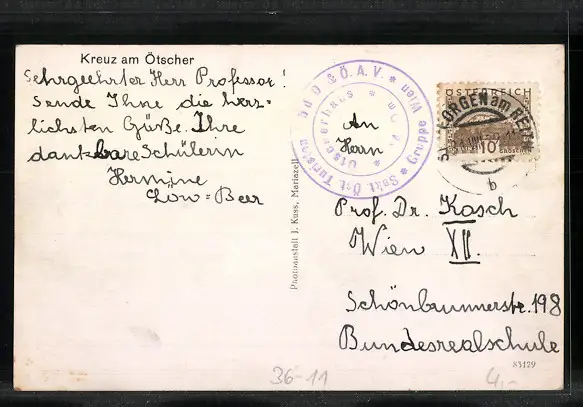 Kreuz am Ötscher
Sehrgeehrter Herr Professor!
Sende Ihne die herz-
lichsten Grüße. Ihre
dankbare Schülerin
Hermine
Löw=Beer
D. & Ö. A. V. * Gruppe Wien * Sekt. Öst. Turisten
Ötscherhaus
ÖSTERREICH
10 GROSCHEN
ST. GEORGEN am REITH
b
An
Herrn
Prof. Dr. Kasch
Wien XII.
Schönbrunnerstr. 198
Bundesrealschule
Photoanstalt J. Kuss, Mariazell
83129
36-11
4,-